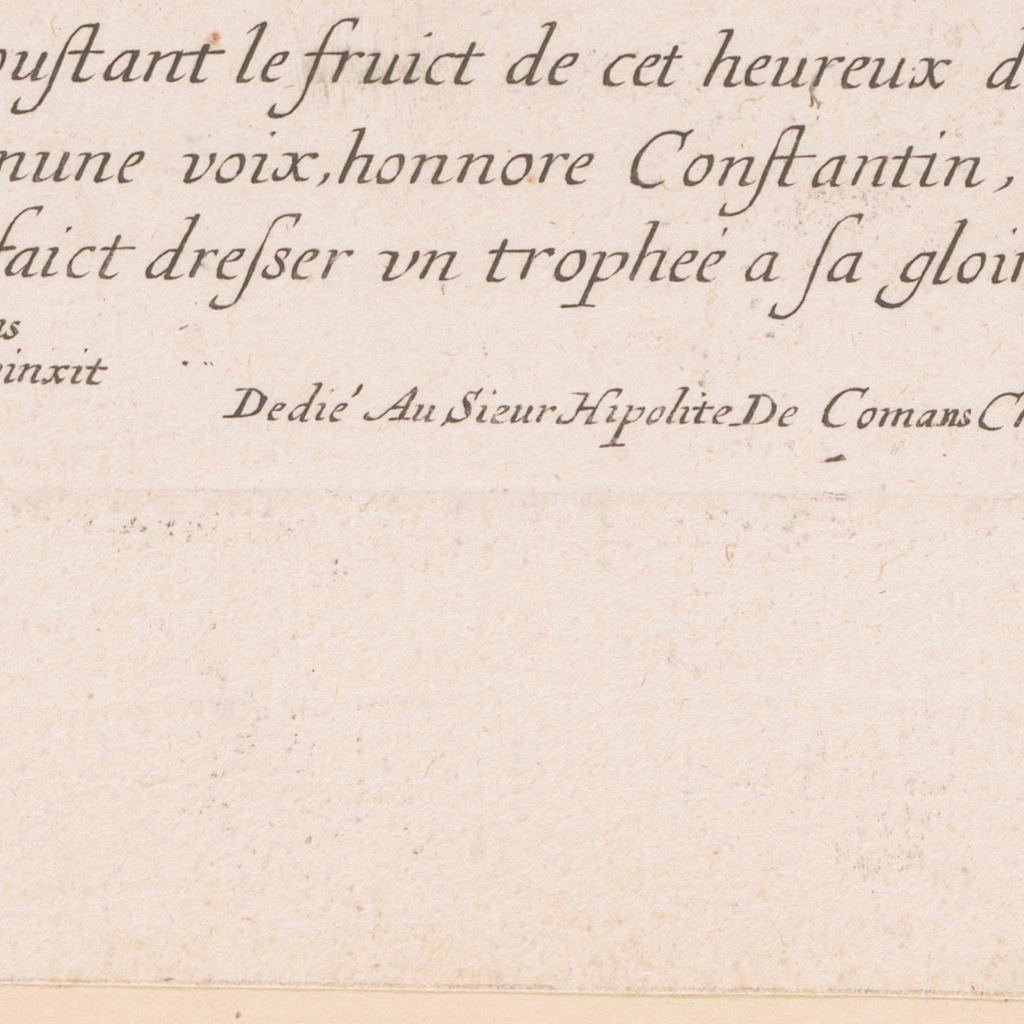 ouſtant le fruict de cet heureux d
mune voix, honnore Conſtantin,
faict dreſser vn trophée a ſa gloir
ns
pinxit
Dedié Au Sieur Hipolite De Comans Ch